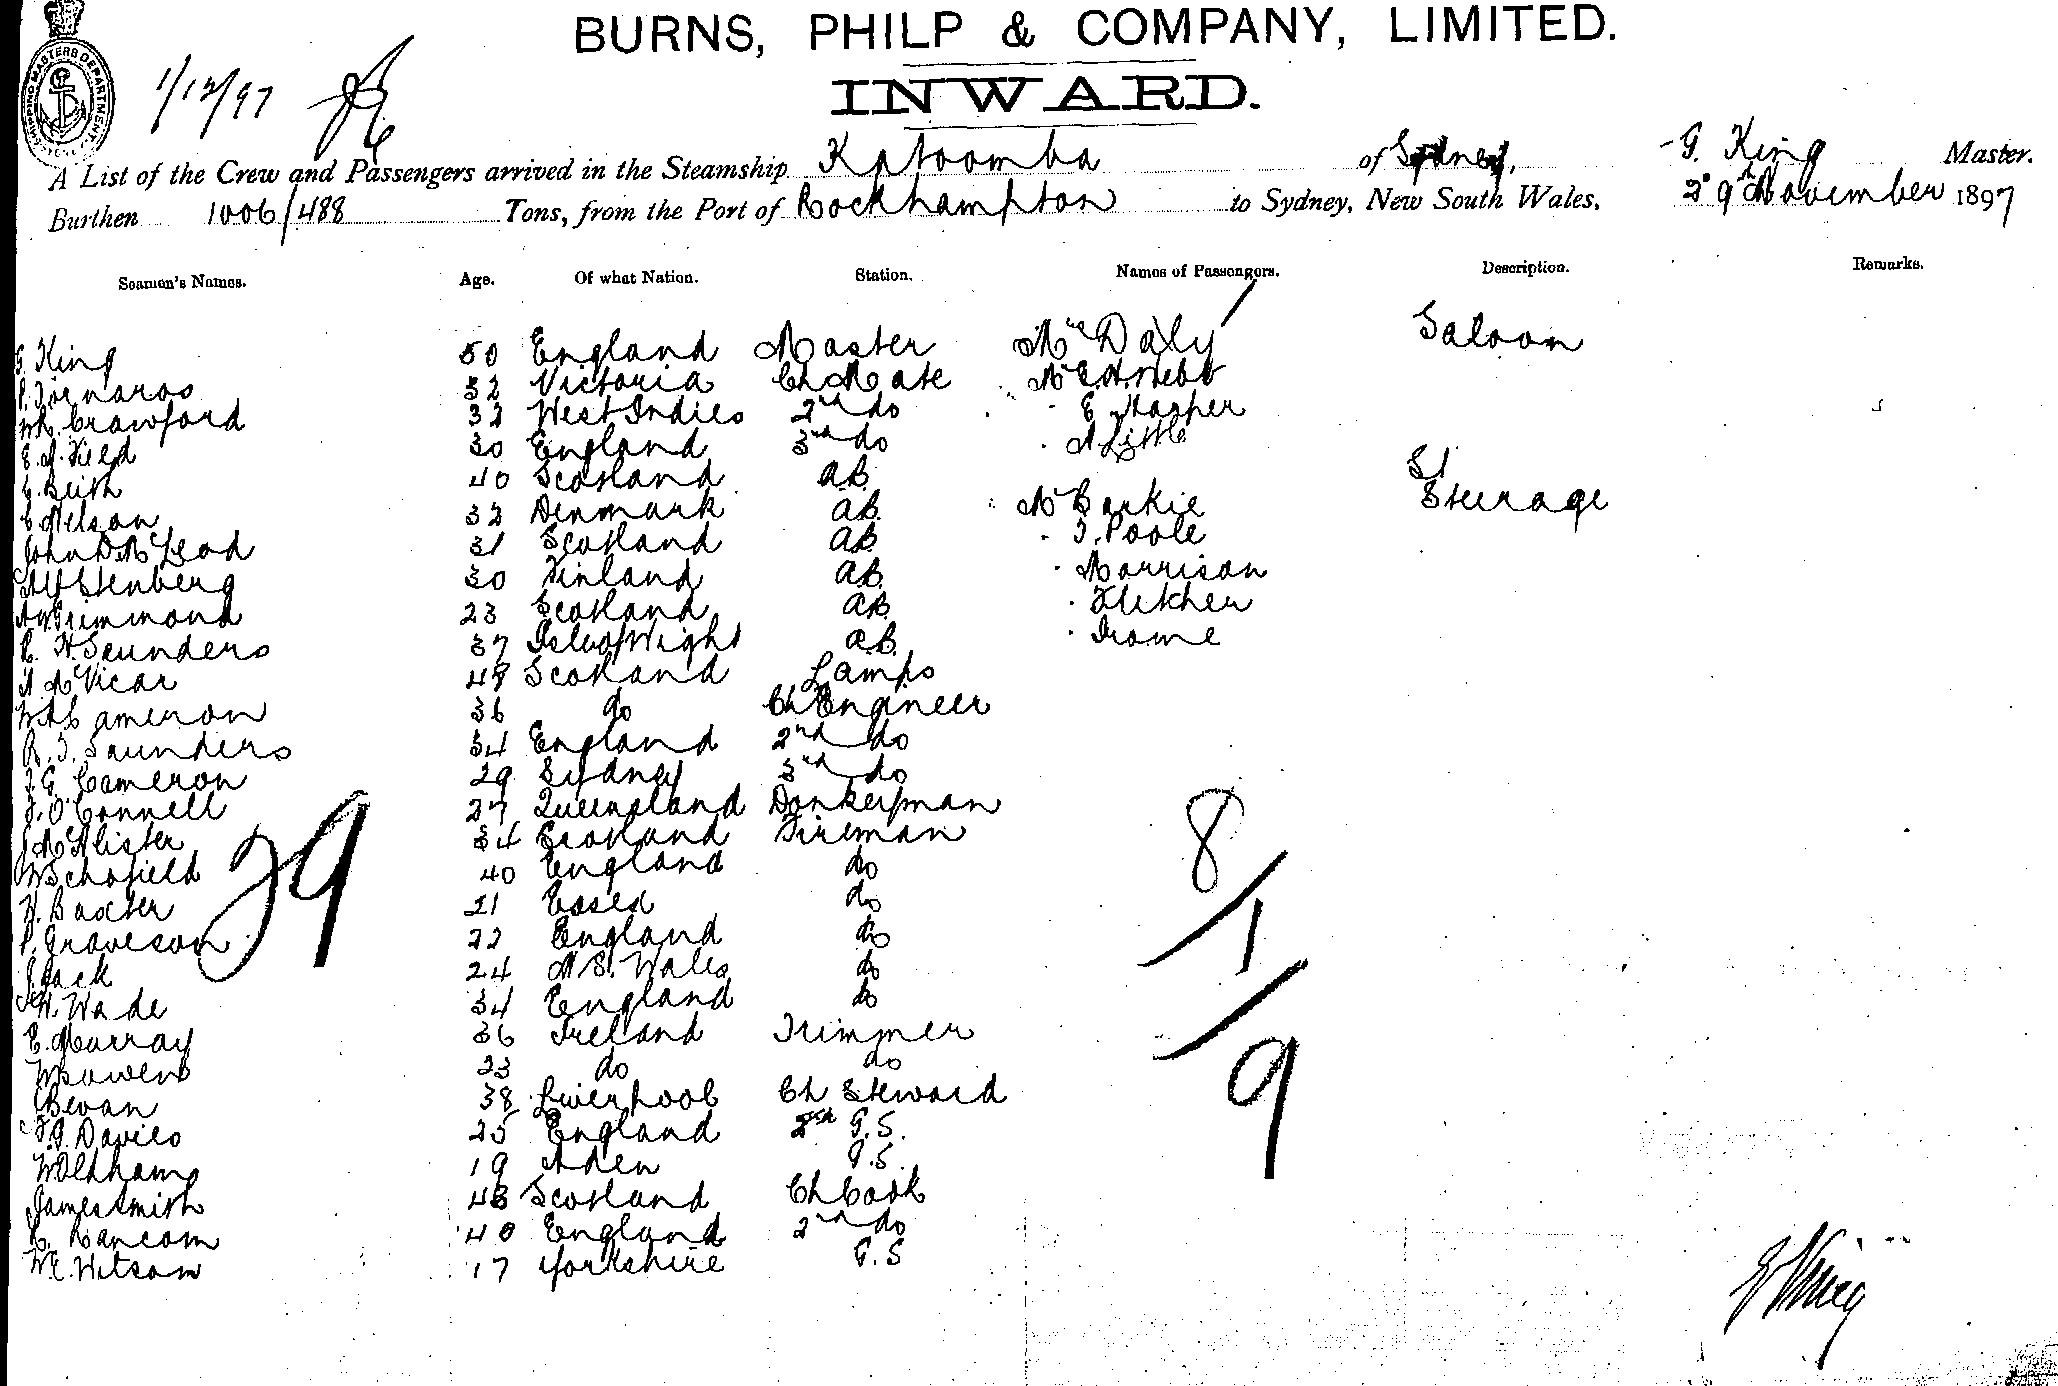 BURNS, PHILP & COMPANY, LIMITED.
INWARD.
SHIPPING MASTERS DEPARTMENT
1/12/97
A List of the Crew and Passengers arrived in the Steamship Katoomba of Sydney, G. King Master.
Burthen 1006/488 Tons, from the Port of Rockhampton to Sydney, New South Wales, 29th November 1897
Seamen's Names. Age. Of what Nation. Station. Names of Passengers. Description. Remarks.
G. King 50 England Master Mrs Daly Saloon
32 Victoria Ch Mate Mr Webb
Crawford 32 West Indies 2nd do E Harper
E. A. Field 30 England 3rd do A Little
G. Beith 40 Scotland A.B.
C. Nelson 32 Denmark A.B. Mr Steerage
John D. McLeod 31 Scotland A.B. T. Poole
Stenberg 30 Finland A.B. Morrison
Grimmond 23 Scotland A.B. Fletcher
C. H. Saunders 37 Isle of Wight A.B. Frome
A McVicar Scotland Lamps
Cameron 36 do Ch Engineer
R. J. Saunders 34 England 2nd do
J. G. Cameron 29 Sydney 3rd do
J. O'Connell 27 Queensland Donkeyman
J McAlister 34 Scotland Fireman
W Schofield 40 England do
H. Baxter 21 do
P. Graveson 22 England do
J. Jack 24 N. S. Wales do
W. Wade 34 England do
E. Murray 36 Ireland Trimmer
W Bowen 23 do do
Bevan 38 Liverpool Ch Steward
F. G. Davies 25 England 2nd G.S.
W. Oldham 19 Aden G.S.
James Smith 43 Scotland Ch Cook
C. Rancom 40 England 2nd do
W. E. Wilson 17 Yorkshire G.S
29
8
1
9
G King